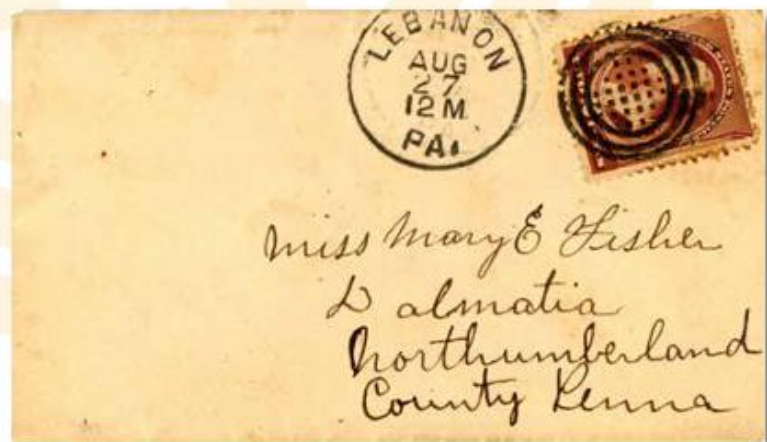 LEBANON
AUG
27
12 M
PA.
Miss Mary E Fisher
Dalmatia
Northumberland
County Penna